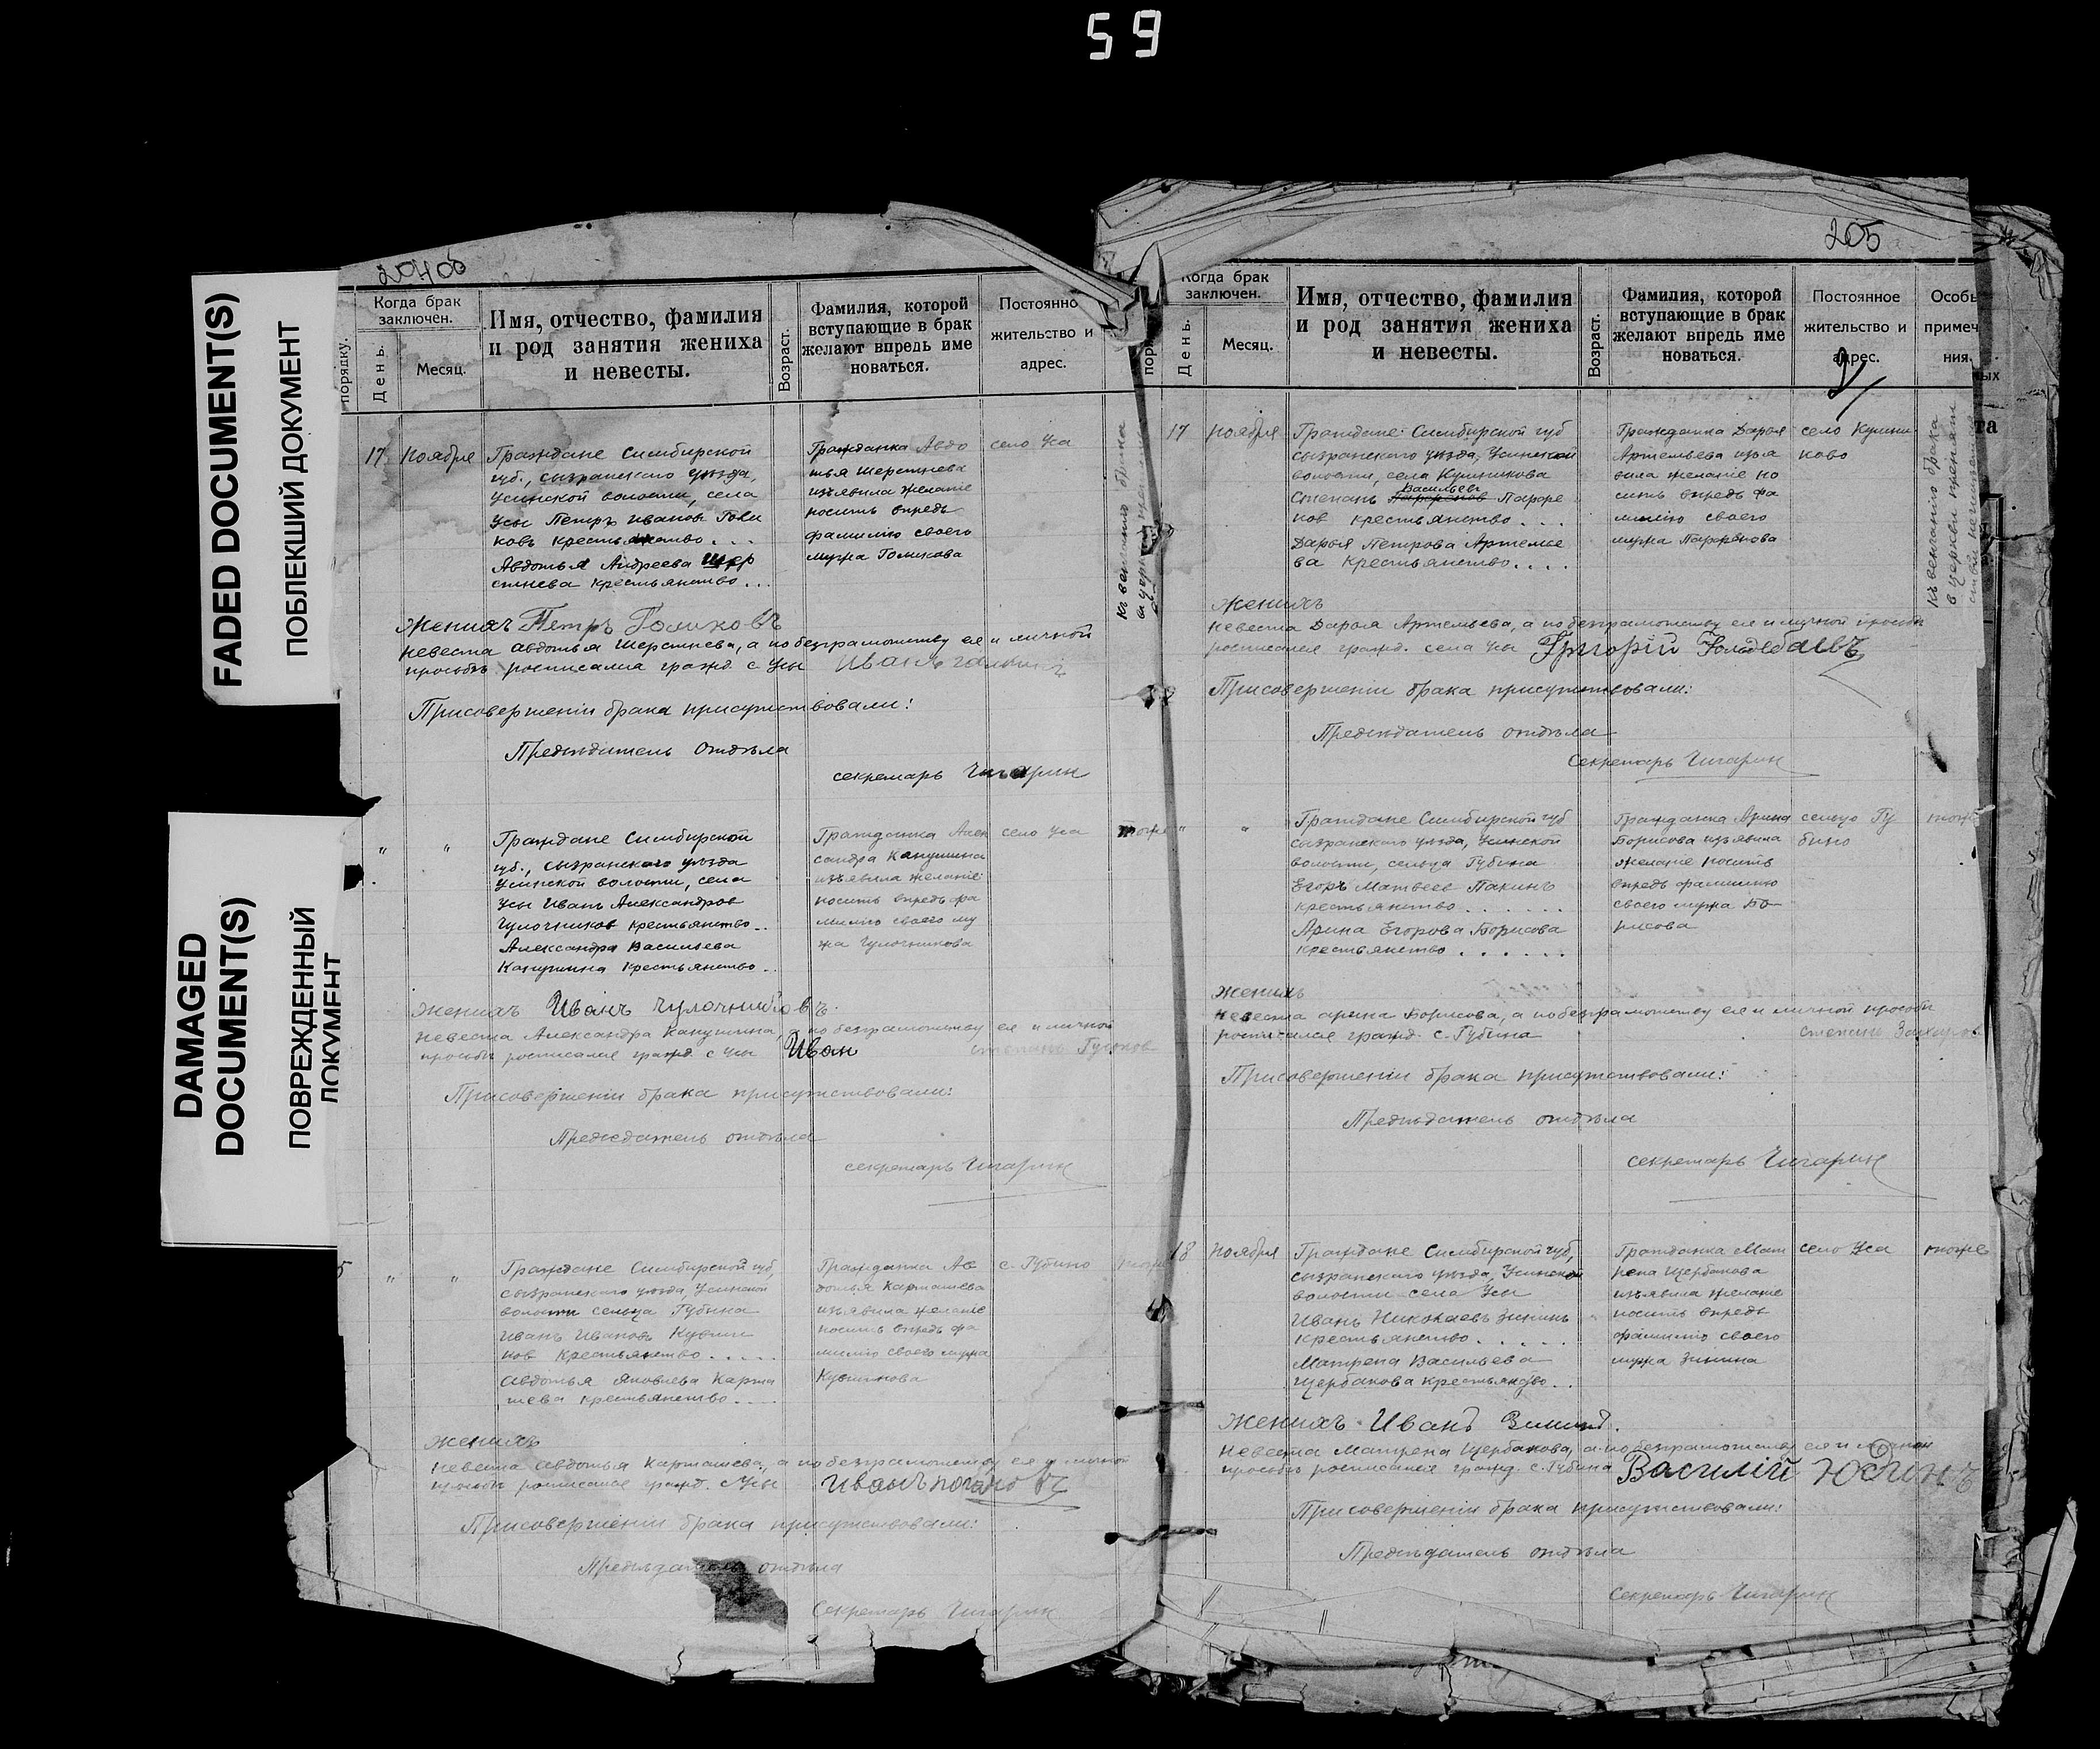 59
FADED DOCUMENT(S)
ПОБЛЕКШИЙ ДОКУМЕНТ
DAMAGED
DOCUMENT(S)
ПОВРЕЖДЕННЫЙ
ДОКУМЕНТ
порядку.
Когда брак
заключен.
День.
Месяц.
Имя, отчество, фамилия
и род занятия жениха
и невесты.
Возраст.
Фамилия, которой
вступающие в брак
желают впредь име
новаться.
Постоянно
жительство и
адрес.
17
Ноября
Граждане Симбирской
губ., сызранскаго уѣзда,
Усинской волости, села
Усы Петръ Иванов Голи
ковъ крестьянство...
Авдотья Андреева Шер
стнева крестьянство...
Гражданка Авдо
тья Шерстнева
изъявила желание
носить впредь
фамилию своего
мужа Голикова
село Уса
Къ венчанию брака
Женихъ Петръ Голиковъ
невеста Авдотья Шерстнева, а по безграмотству ея и личной
просьбѣ росписался гражд. с Усы Иванъ
Присовершении брака присутствовали:
Предсѣдатель Отдѣла
секретарь Чигарин
" "
Граждане Симбирской
губ., сызранскаго уѣзда
Усинской волости, села
Усы Иванъ Александров
Чулочников крестьянство..
Александра Васильева
Канушина крестьянство..
Гражданка Алек
сандра Канушина
изъявила желание
носить впредь фа
милию своего му
жа Чулочникова
село Уса
тоже
Женихъ Иванъ Чулочниковъ.
невеста Александра Канушина, по безграмотству ея и личной
просьбѣ росписался гражд. с Усы Иван
Присовершении брака присутствовали:
Предсѣдатель отдѣла
секретарь Чигарин
5 " "
Граждане Симбирской губ,
сызранскаго уѣзда, Усинской
волости сельца Губина
Иванъ Ивановъ Кувши
нов крестьянство.....
Авдотья Яковлева Карта
шева крестьянство....
Гражданка Ав
дотья Карташева
изъявила желание
носить впредь фа
милию своего мужа
Кувшинова
с. Губино
Женихъ
невеста Авдотья Карташева, а по безграмотству ея и личной
просьбѣ росписался гражд. с Усы Иванъ
Присовершении брака присутствовали:
Предсѣдатель отдѣла
Секретарь Чигарин
205
Когда брак
заключен.
День.
Месяц.
Имя, отчество, фамилия
и род занятия жениха
и невесты.
Возраст.
Фамилия, которой
вступающие в брак
желают впредь име
новаться.
Постоянное
жительство и
адрес.
Особы
примеч
ния.
17
Ноября
Граждане Симбирской губ
сызранскаго уѣзда, Усинской
волости, села Кушникова
Васильевъ
Степанъ Парфе
нов крестьянство...
Дарья Петрова Артемье
ва крестьянство....
Гражданка Дарья
Артемьева изъя
вила желание но
сить впредь фа
милию своего
мужа Парфенова
село Кушни
ково
Къ венчанию брака
в церкви
Женихъ
невеста Дарья Артемьева, а по безграмотству ея и личной просьбѣ
росписался гражд. села Усы Григорий
Присовершении брака присутствовали:
Предсѣдатель отдѣла
Секретарь Чигарин
" "
Граждане Симбирской губ
сызранскаго уѣзда, Усинской
волости, сельца Губина
Егоръ Матвеев Пакинъ
крестьянство.......
Арина Егорова Борисова
крестьянство......
Гражданка Арина
Борисова изъявила
желание носить
впредь фамилию
своего мужа Бо-
рисова
сельцо Гу
бино
тоже
Женихъ
невеста Арина Борисова, а по безграмотству ея и личной просьбѣ
росписался гражд. с. Губина Степанъ Захаров
Присовершении брака присутствовали:
Предсѣдатель отдѣла
секретарь Чигарин
18
Ноября
Граждане Симбирской губ,
сызранскаго уѣзда, Усинской
волости села Усы
Иванъ Николаевъ Зининъ
крестьянство.....
Матрена Васильева
Щербакова крестьянство..
Гражданка Мат
рена Щербакова
изъявила желание
носить впредь
фамилию своего
мужа Зинина
село Уса
тоже
Женихъ Иванъ Зининъ.
невеста Матрена Щербакова, а по безграмотству ея и личной
просьбѣ росписался гражд. с. Губина Василий Юдинъ
Присовершении брака присутствовали:
Предсѣдатель отдѣла
Секретарь Чигарин